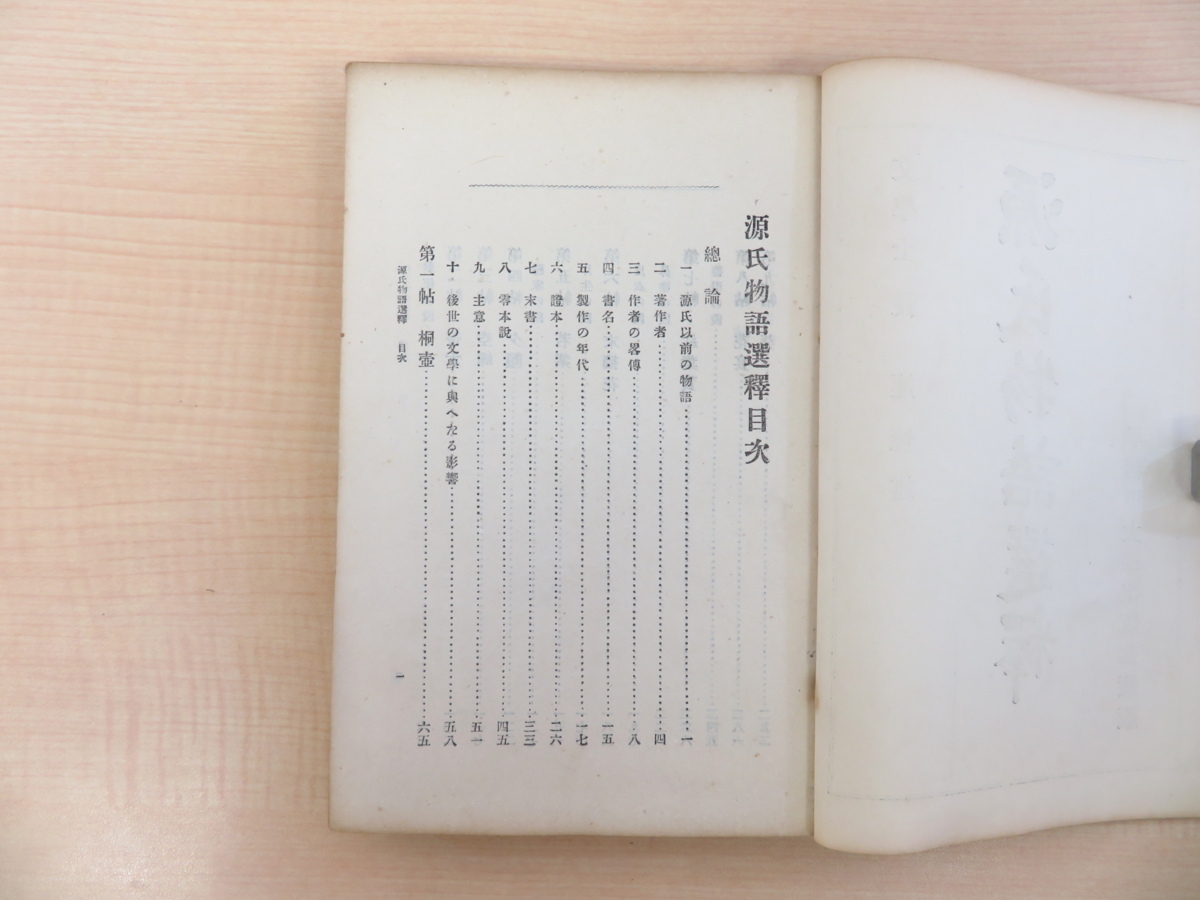 源氏物語選釋目次
總論
一 源氏以前の物語……一
二 著作者……四
三 作者の畧傳……八
四 書名……一五
五 製作の年代……一七
六 證本……二六
七 末書……三三
八 零本說……四五
九 主意……五一
十 後世の文學に與へたる影響……五八
第一帖 桐壺……六五
源氏物語選釋 目次
一